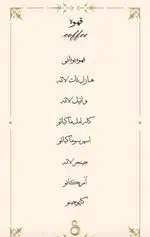 قهوة
coffee
قهوه یونانی
هازل نات لاته
وانیل لاته
کارامل ماکیاتو
اسپرسو ماکیاتو
جینجر لاته
آمریکانو
کاپوچینو